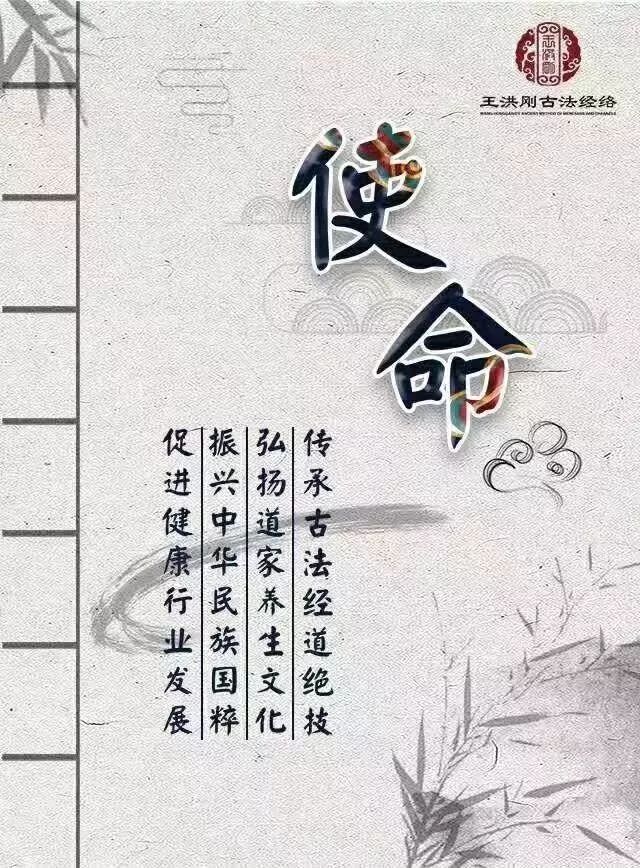 王洪刚古法经络
使命
传承古法经道绝技
弘扬道家养生文化
振兴中华民族国粹
促进健康行业发展